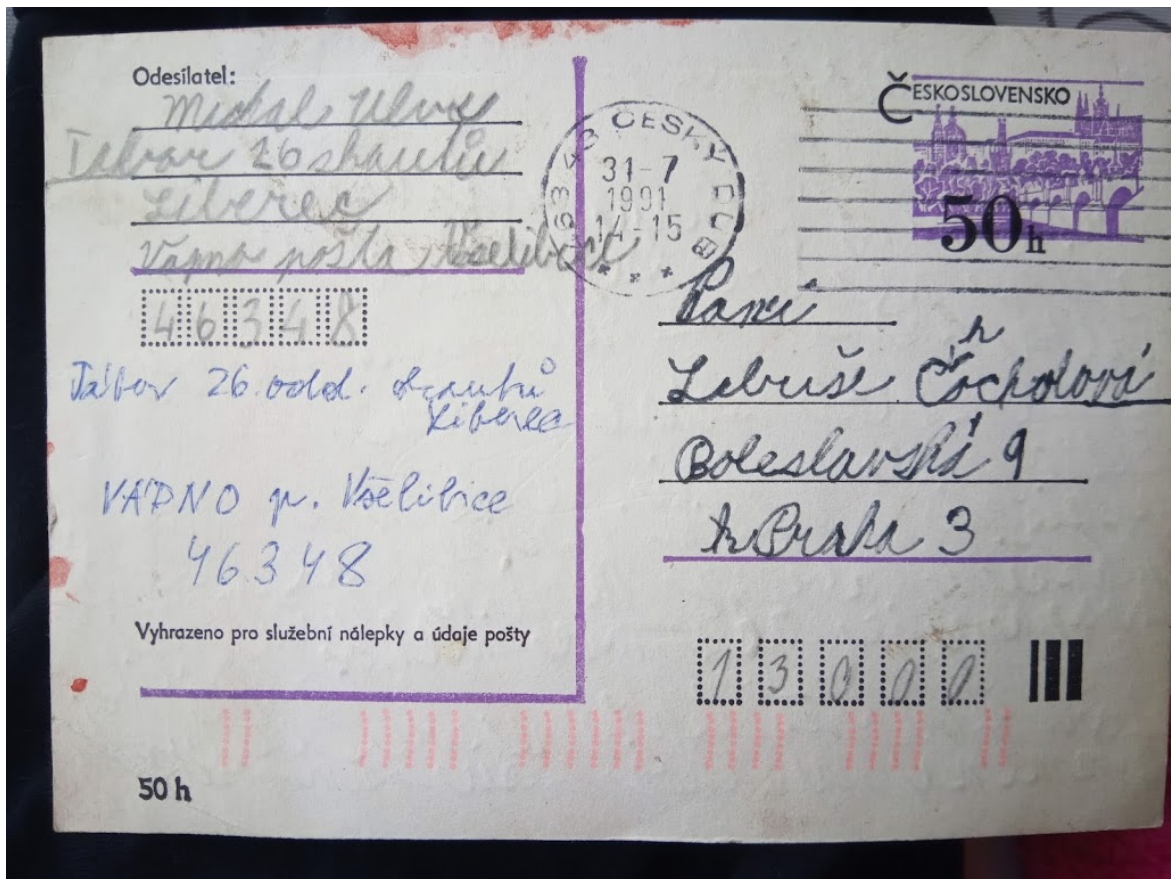 Odesílatel:
Michal
Tábor 26 skautů
Liberec
Vápno pošta Všelibice
46348
Tábor 26. odd. skautů
Liberec
VÁPNO p. Všelibice
46348
Vyhrazeno pro služební nálepky a údaje pošty
50 h
463 43 ČESKÝ DUB
31-7
1991
14-15
ČESKOSLOVENSKO
50h
Paní
Libuše
Boleslavská 9
Praha 3
13000